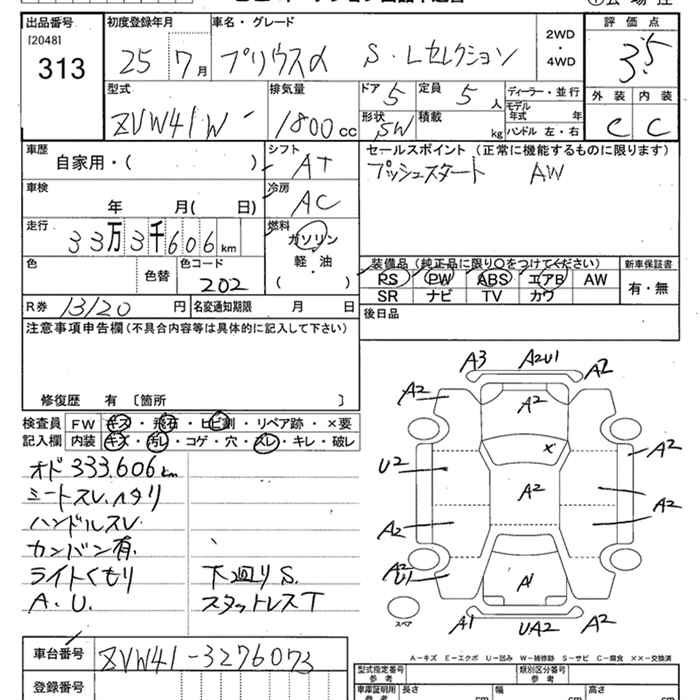 出品番号 初度登録年月 車名・グレード 評価点
[2048]
313
25 7月 プリウスα S・Lセレクション
2WD
・
4WD
3.5
型式 排気量 ドア 定員 ディーラー・並行 外装 内装
ZVW41W 1800cc 5 5人
モデル年式 年
形状 積載
SW kg ハンドル 左・右
C C
車歴 シフト セールスポイント (正常に機能するものに限ります)
自家用・( ) AT プッシュスタート AW
車検 冷房
年 月( 日) AC
走行 燃料
33万3千606km ガソリン
軽・油
( )
色 色コード
色替 202
装備品 (純正品に限り○をつけてください) 新車保証書
PS PW ABS エアB AW 有・無
SR ナビ TV カワ
R券 13120円 名変通知期限 月 日 後日品
注意事項申告欄(不具合内容等は具体的に記入して下さい)
修復歴 有 〔箇所 〕
検査員 FW キズ・飛石・ヒビ割・リペア跡・×要
記入欄 内装 キズ・汚レ・コゲ・穴・スレ・キレ・破レ
オド 333.606km
シートスレ.ヘタリ
ハンドルスレ
カンバン有.
ライトくもり 下廻りS.
A.U. スタットレスT
A3 A2U1 A2
A2 A2
X
U2 A2
A2 A2
A2
A2 U1 A1
スペア A1 UA2 A2
A-キズ E-エクボ U-凹み W-補修跡 S-サビ C-腐食 ××-交換済
車台番号 ZVW41-3276073
登録番号
型式指定番号 参考 類別区分番号 参考
車庫証明用 参考 長さ cm 幅 cm 高さ cm